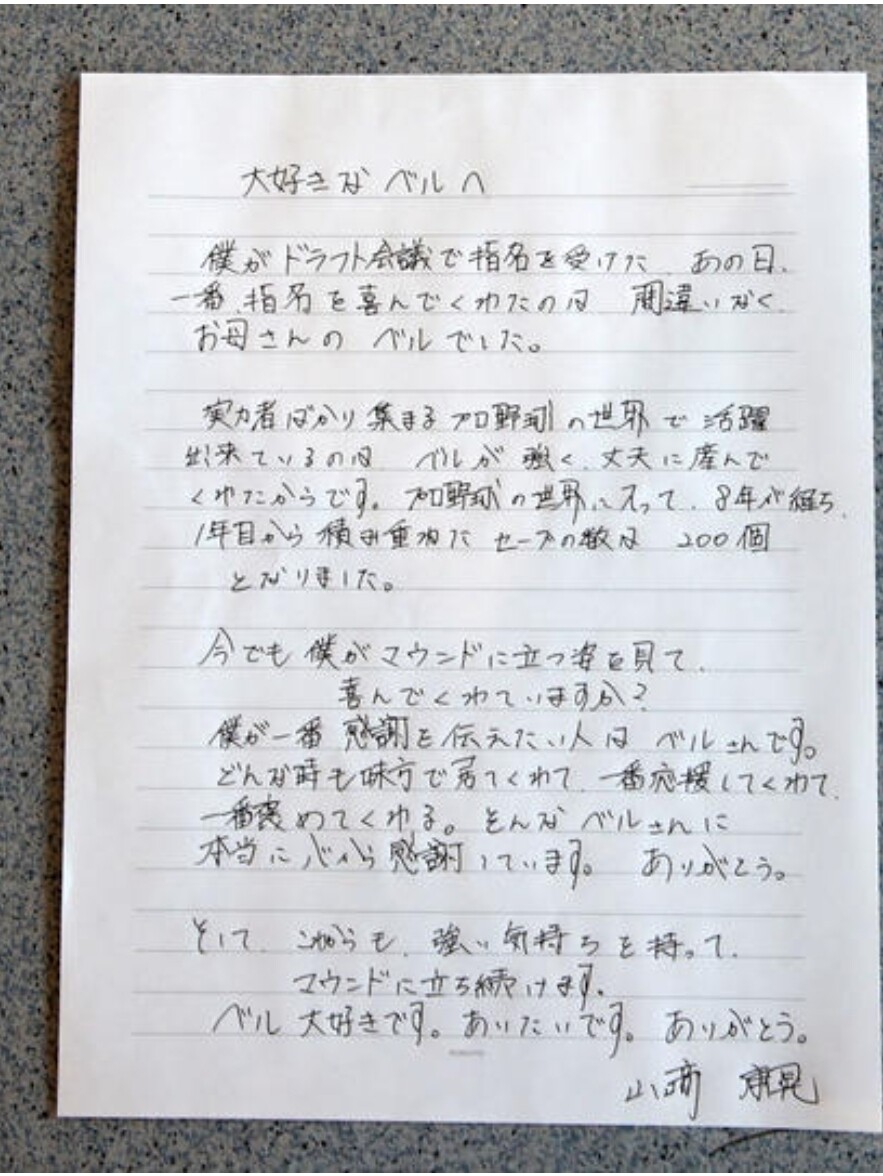 大好きな ベルへ
僕が ドラフト会議で 指名を受けた あの日、
一番、指名を喜んでくれたのは 間違いなく、
お母さんの ベルでした。
実力者ばかり集まる プロ野球の世界で 活躍
出来ているのは、ベルが 強く、丈夫に産んで
くれたからです。プロ野球の世界に入って、8年が経ち、
1年目から 積み重ねた セーブの数は 200個
となりました。
今でも 僕がマウンドに立つ姿を見て、
喜んでくれていますか?
僕が一番 感謝を伝えたい人は ベルさんです。
どんな時も味方で居てくれて、一番応援してくれて、
一番褒めてくれる。そんな ベルさんに
本当に心から感謝しています。 ありがとう。
そして、これからも、強い気持ちを持って、
マウンドに立ち続けます。
ベル 大好きです。あいたいです。ありがとう。
山﨑 康晃